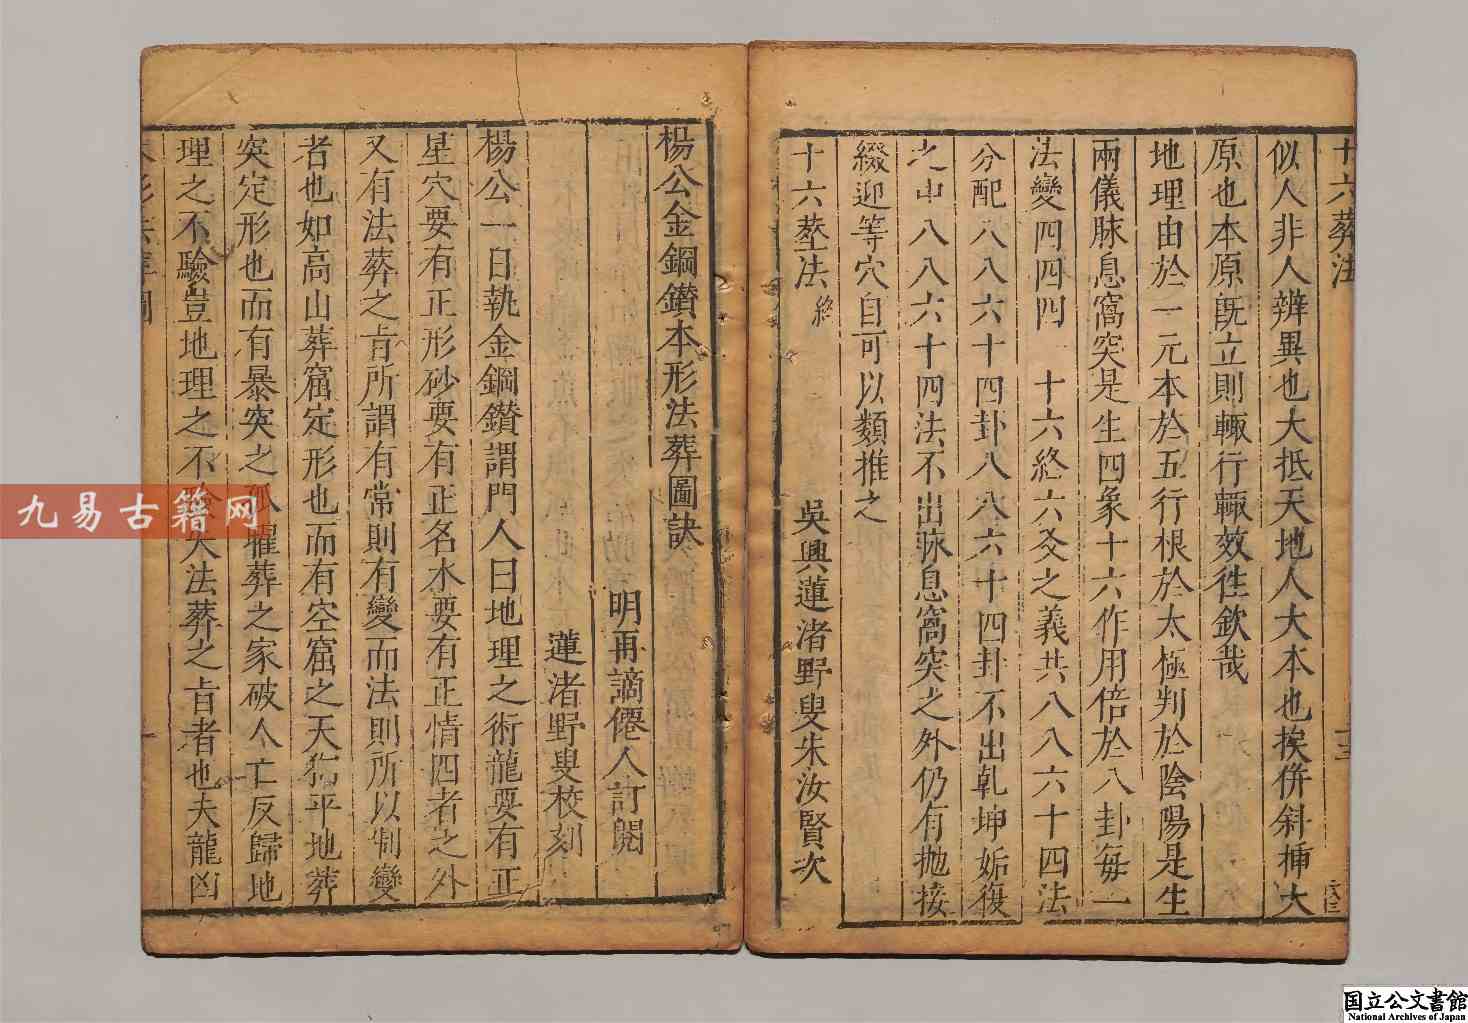 十六葬法
似人非人辨異也大抵天地人大本也挨併斜插大
原也本原既立則輙行輙效徃欽哉
地理由於一元本於五行根於太極判於陰陽是生
兩儀脉息窩突是生四象十六作用倍於八卦每一
法變四四四　十六終六爻之義共八八六十四法
分配八八六十四卦八八六十四卦不出乾坤姤復
之中八八六十四法不出脉息窩突之外仍有拋接
綴迎等穴自可以類推之
吳興蓮渚野叟朱汝賢次
十六塟法終
楊公金鋼鑚本形法葬圖訣
明再謫僊人訂閱
蓮渚野叟校刻
楊公一日執金鋼鑚謂門人曰地理之術龍要有正
星穴要有正形砂要有正名水要有正情四者之外
又有法葬之旨所謂有常則有變而法則所以制變
者也如高山葬窟定形也而有空窟之天狗平地葬
突定形也而有暴突之孤曜葬之家破人亡反歸地
理之不驗豈地理之不失法葬之旨者也夫龍凶
九易古籍网
国立公文書館
National Archives of Japan